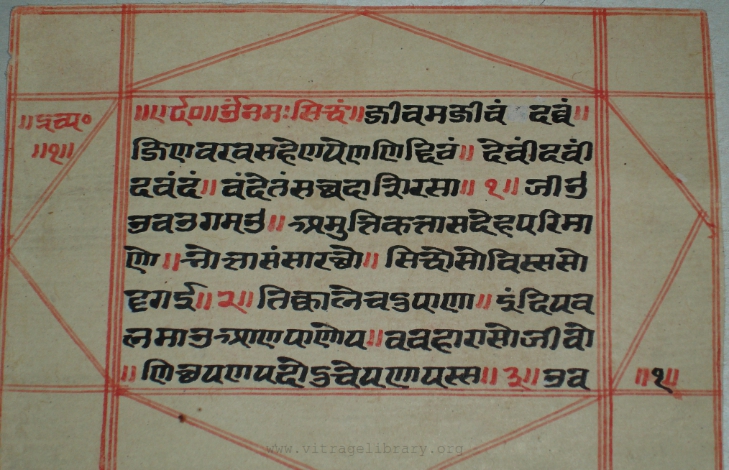 ॥द्रव्य०
॥१॥
॥ नमःसिद्धं॥जीवमजीवं दव्वं॥
जिणवरवसहेणयेणणिद्दिठं॥ देवींदवीं
दवंदं॥ वंदेतंसव्वदाशिरसा॥ १॥ जीउ
उवउगमउ॥ अमुत्तिकत्तासदेहपरिमा
णो॥ भोत्तासंसारत्थो॥ सिद्धोसोविस्ससो
ड्ढगई॥ २॥ तिक्कालेचदुपाणा॥ इंदियव
लमाउआणपाणोय॥ववहारासोजीवो
॥ णिच्चयणयदोदुचेयणयस्स॥ ३॥ उव
॥१॥
www.vitragelibrary.org